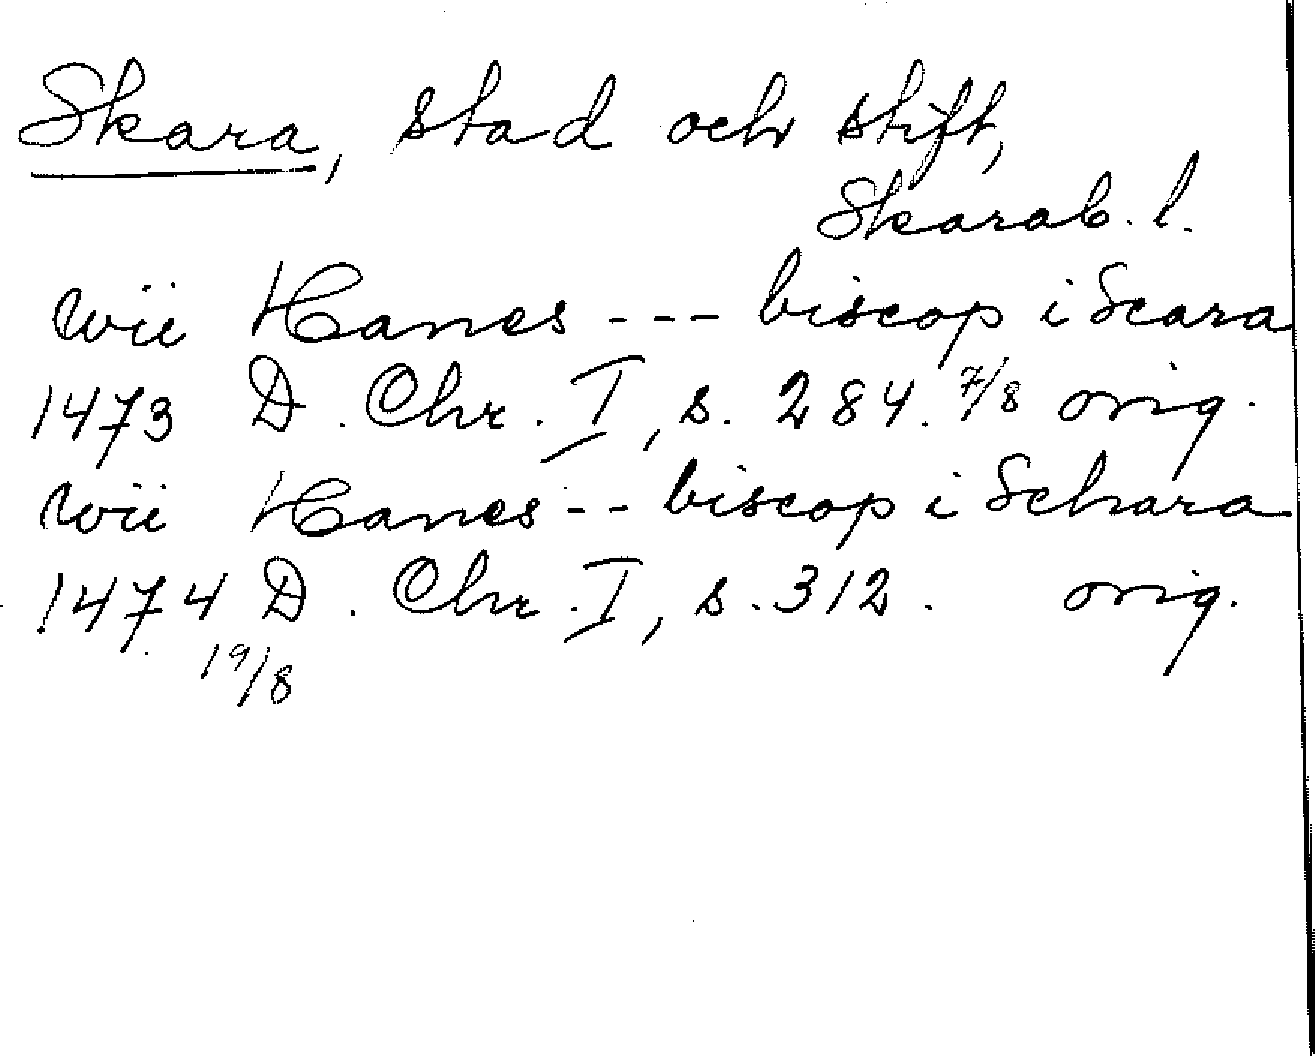 Skara, stad och stift,
Skarab. l.
wii Hanes --- biscop i Scara
1473 D. Chr. I, s. 284. 7/8 orig.
wii Hanes -- biscop i Schara
1474 D. Chr. I, s. 312. orig.
19/8